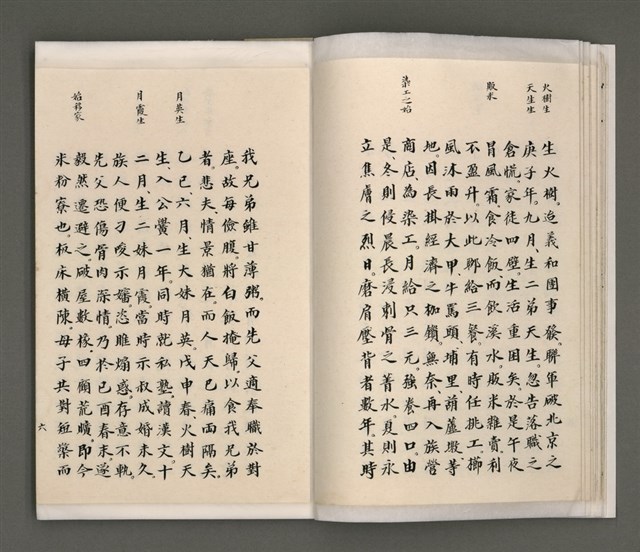 火樹生
天生生
販米
染工之始
生火樹。迨義和團事發。聯軍破北京之
庚子年。九月、生二弟天生。忽告落職之
倉慌。家徒四壁。生活重困矣。於是午夜
冒風霜、食冷飯、而飲溪水。販米雜賣。利
不盈升。以此聊給三餐。有時任挑工。櫛
風沐雨於大甲、牛罵頭、埔里、葫蘆墩等
地。因長掛經濟之枷鎖。無奈、再入族營
商店、為染工。月給只三元。強養四口。由
是、冬則侵晨長浸刺骨之菁水。夏則永
立焦膚之烈日。磨肩壓背者數年。其時
月英生
月霞生
始移家
我兄弟雖甘薄粥。而先父適奉職於對
座。故每儉腹。將白飯掩歸以食我兄弟
者。悲夫、情景猶在。而人天已痛兩隔矣。
乙巳、六月、生大妹月英。戊申春、火樹天
生、入公黌一年。同時就私塾、讀漢文。十
二月、生二妹月霞。當時示叔成婚未久。
族人便刁唆示嬸恣睢煽惑。存意不軌。
先父恐傷骨肉深情。乃於己酉春末、遂
毅然遷避之。破屋數椽。四顧荒曠。即今
米粉寮也。板床橫陳。母子共對短檠而
六